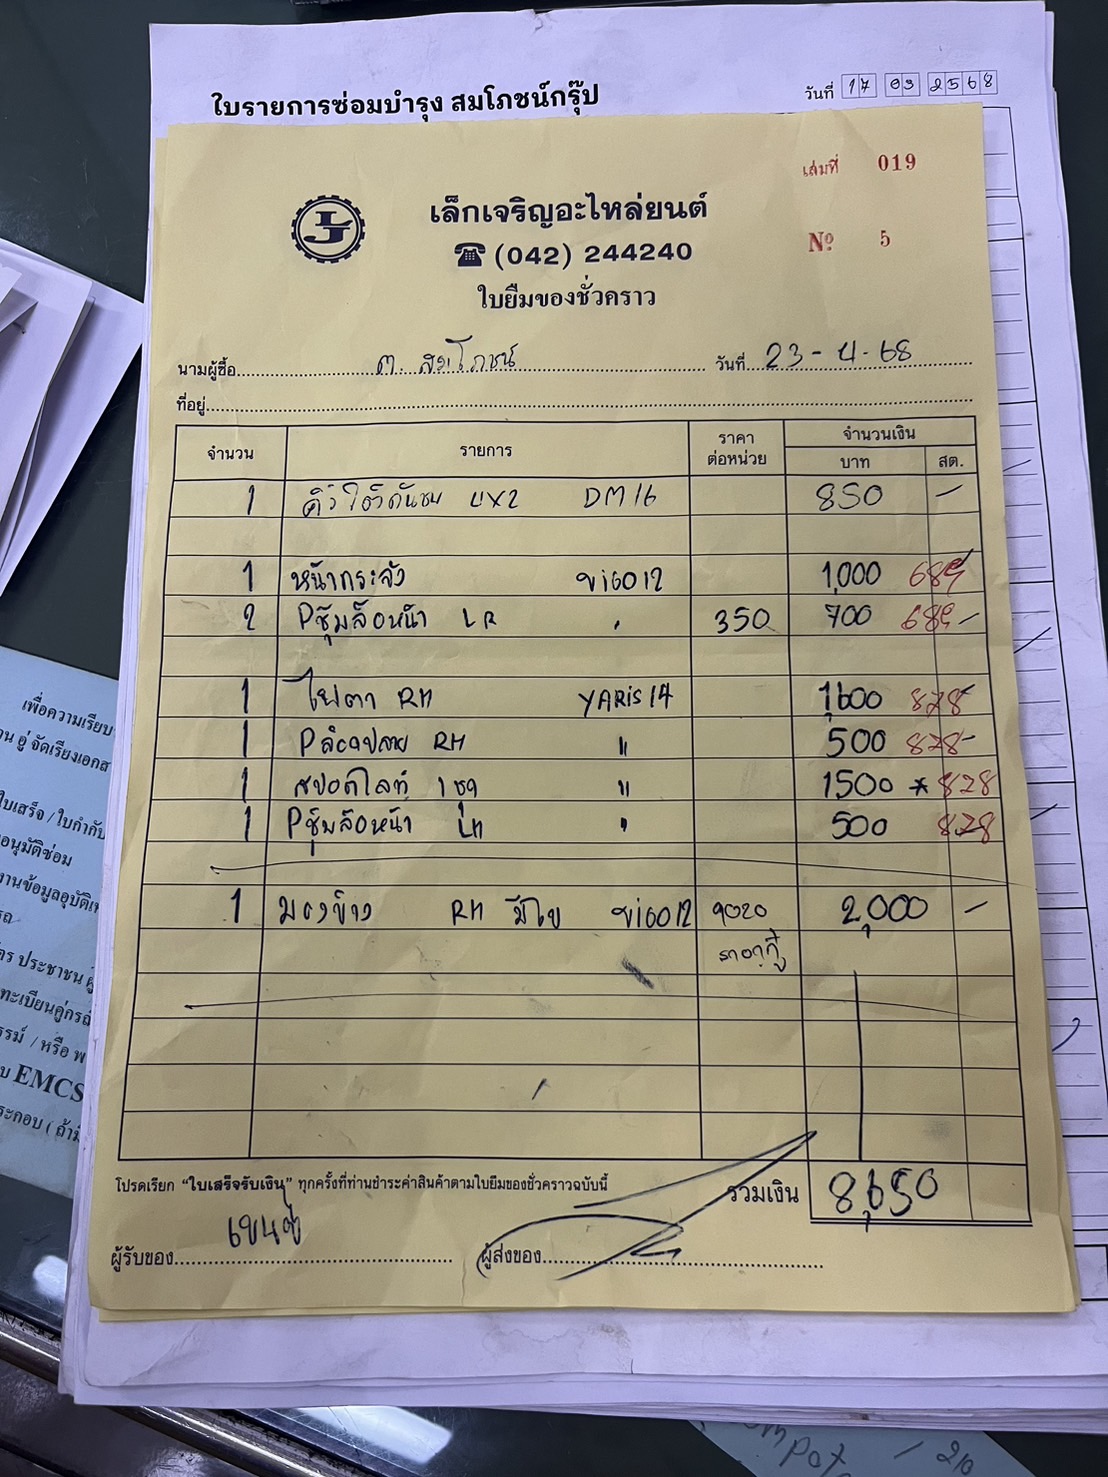 ใบรายการซ่อมบำรุง สมโภชน์กรุ๊ป
วันที่ 17 03 2568
เล่มที่ 019
เล็กเจริญอะไหล่ยนต์
(042) 244240
Nº 5
ใบยืมของชั่วคราว
นามผู้ซื้อ ต. สมโภชน์ วันที่ 23-4-68
ที่อยู่
จำนวน รายการ ราคาต่อหน่วย จำนวนเงิน
บาท สต.
1 คิ้วโป่งกันชน 4X2 DM16 850 -
1 หน้ากระจัง vigo12 1,000 689
2 Pซุ้มล้อหน้า LR " 350 700 689 -
1 ไฟตา RH YARIS14 1,600 878
1 P RH " 500 878 -
1 สปอตไลท์ 1 ชุด " 1500 * 878
1 Pซุ้มล้อหน้า LH " 500 878
1 มองข้าง RH มีไฟ vigo12 9020 2,000 -
โปรดเรียก "ใบเสร็จรับเงิน" ทุกครั้งที่ท่านชำระค่าสินค้าตามใบยืมของชั่วคราวฉบับนี้
รวมเงิน 8,650
ผู้รับของ ผู้ส่งของ
เพื่อความเรียบ
อู่ จัดเรียงเอกส
ใบเสร็จ / ใบกำกับ
อนุมัติซ่อม
งานข้อมูลอุบัติเห
ตร ประชาชน ผู้
ทะเบียนคู่กรณี
รรม์ / หรือ พ
บ EMCS
ระกอบ ( ถ้ามี